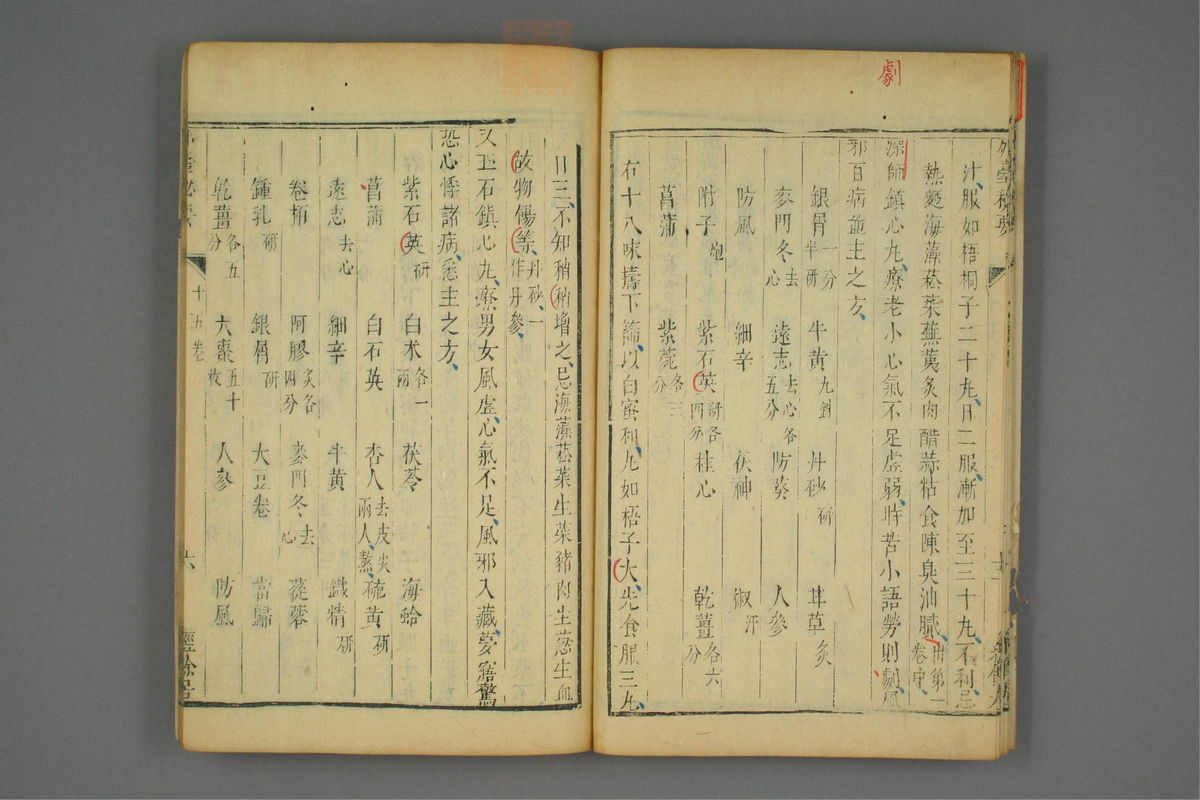 劇
外臺秘要
汁服如梧桐子二十丸日二服漸加至三十丸不利忌
熱麪海藻菘菜蕪荑炙肉醋蒜粘食陳臭油膩 卅第一卷中
深師鎮心丸療老小心氣不足虛弱時苦小語勞則劇風
邪百病並主之方
銀屑一分半研 牛黃九銖 丹砂研 甘草炙
麥門冬去心 遠志去心五分各 防葵 人參
防風 細辛 茯神 椒汗
附子炮 紫石英研各四分 桂心 乾薑各六分
菖蒲 紫菀各三分
右十八味擣下篩以白蜜和丸如梧子大先食服三丸
日三不知稍稍增之忌海藻菘菜生菜豬肉生葱生血
故物餳等丹砂一作丹參
又玉石鎮心丸療男女風虛心氣不足風邪入藏夢寤驚
恐心悸諸病悉主之方
紫石英研 白朮各一兩 茯苓 海蛤
菖蒲 白石英 杏人去皮尖兩人熬 硫黃研
遠志去心 細辛 牛黃 鐵精研
卷柏 阿膠炙各四分 麥門冬去心 蓯蓉
鍾乳研 銀屑研 大豆卷 當歸
乾薑各五分 大棗五十枚 人參 防風
十五卷 六 經餘居